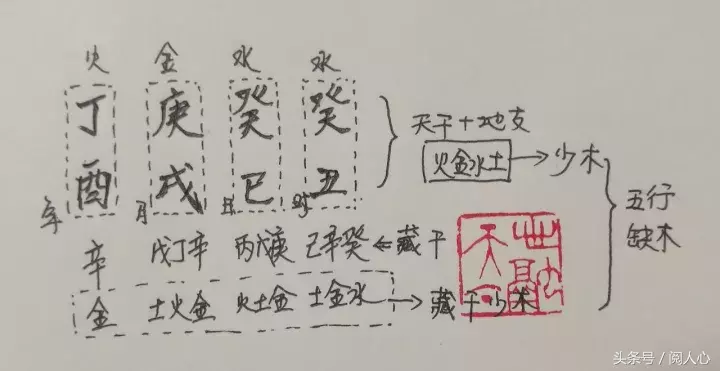 火 金 水 水
丁 庚 癸 癸
天干+地支
火金水土→少木
酉 戌 巳 丑
年 月 日 时
五行
缺木
辛 戊丁辛 丙戊庚 己辛癸←藏干
金 土火金 火土金 土金水→藏干少木
头条号 / 阅人心